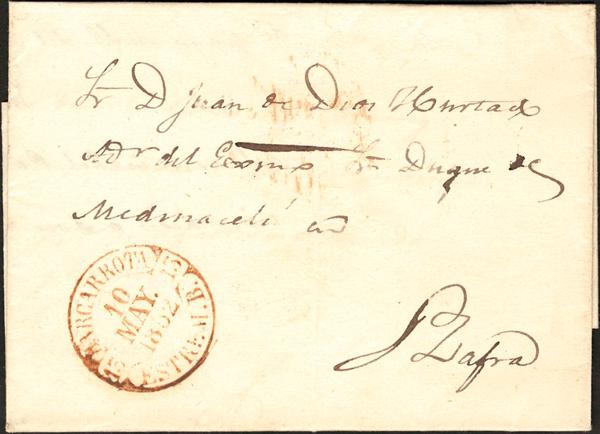 Sr D Juan de Dios Hurtado
Adr del Exmo Sr Duque de
Medinaceli en
Zafra
BARCARROTA
10
MAY.
1852
ESTREM. B.